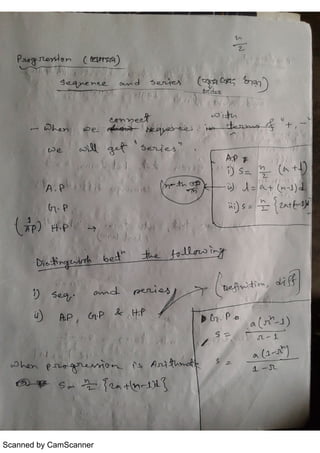 n/2
Progression
Sequence and series
order
- When we connect sequence with terms of "+, -"
we will get "series".
A.P
G.P
(1/AP) H.P →
AP
i) S = n/2 (a+l)
ii) l = a+(n-1)d
iii) S = n/2 {2a+(n-1)d}
Distinguish betn the following
i) seq. and series
ii) AP, G.P & H.P
(Definition, diff)
G.P.
S = a(r^n-1)/r-1
S = a(1-r^n)/1-r
When progression is Arithmetic
S = n/2 {2a+(n-1)d}
Scanned by CamScanner